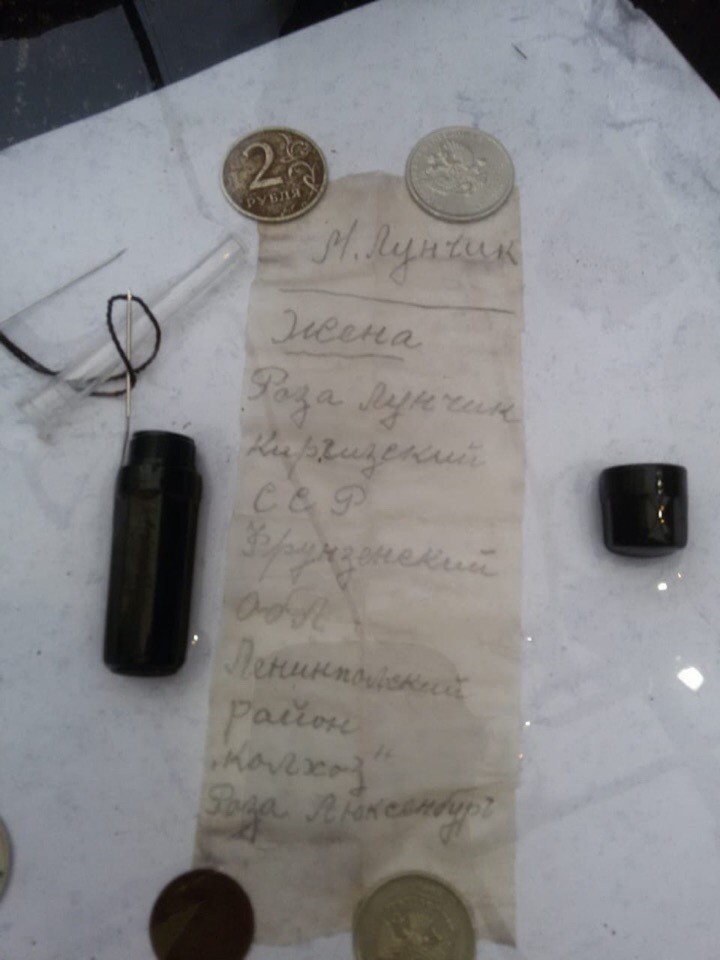 2
РУБЛЯ
М. Лунчик
Жена
Роза Лунчик
Киргизский
С С Р
Фрунзенский
обл
Ленинполский
район
"Колхоз"
Роза Люксенбург